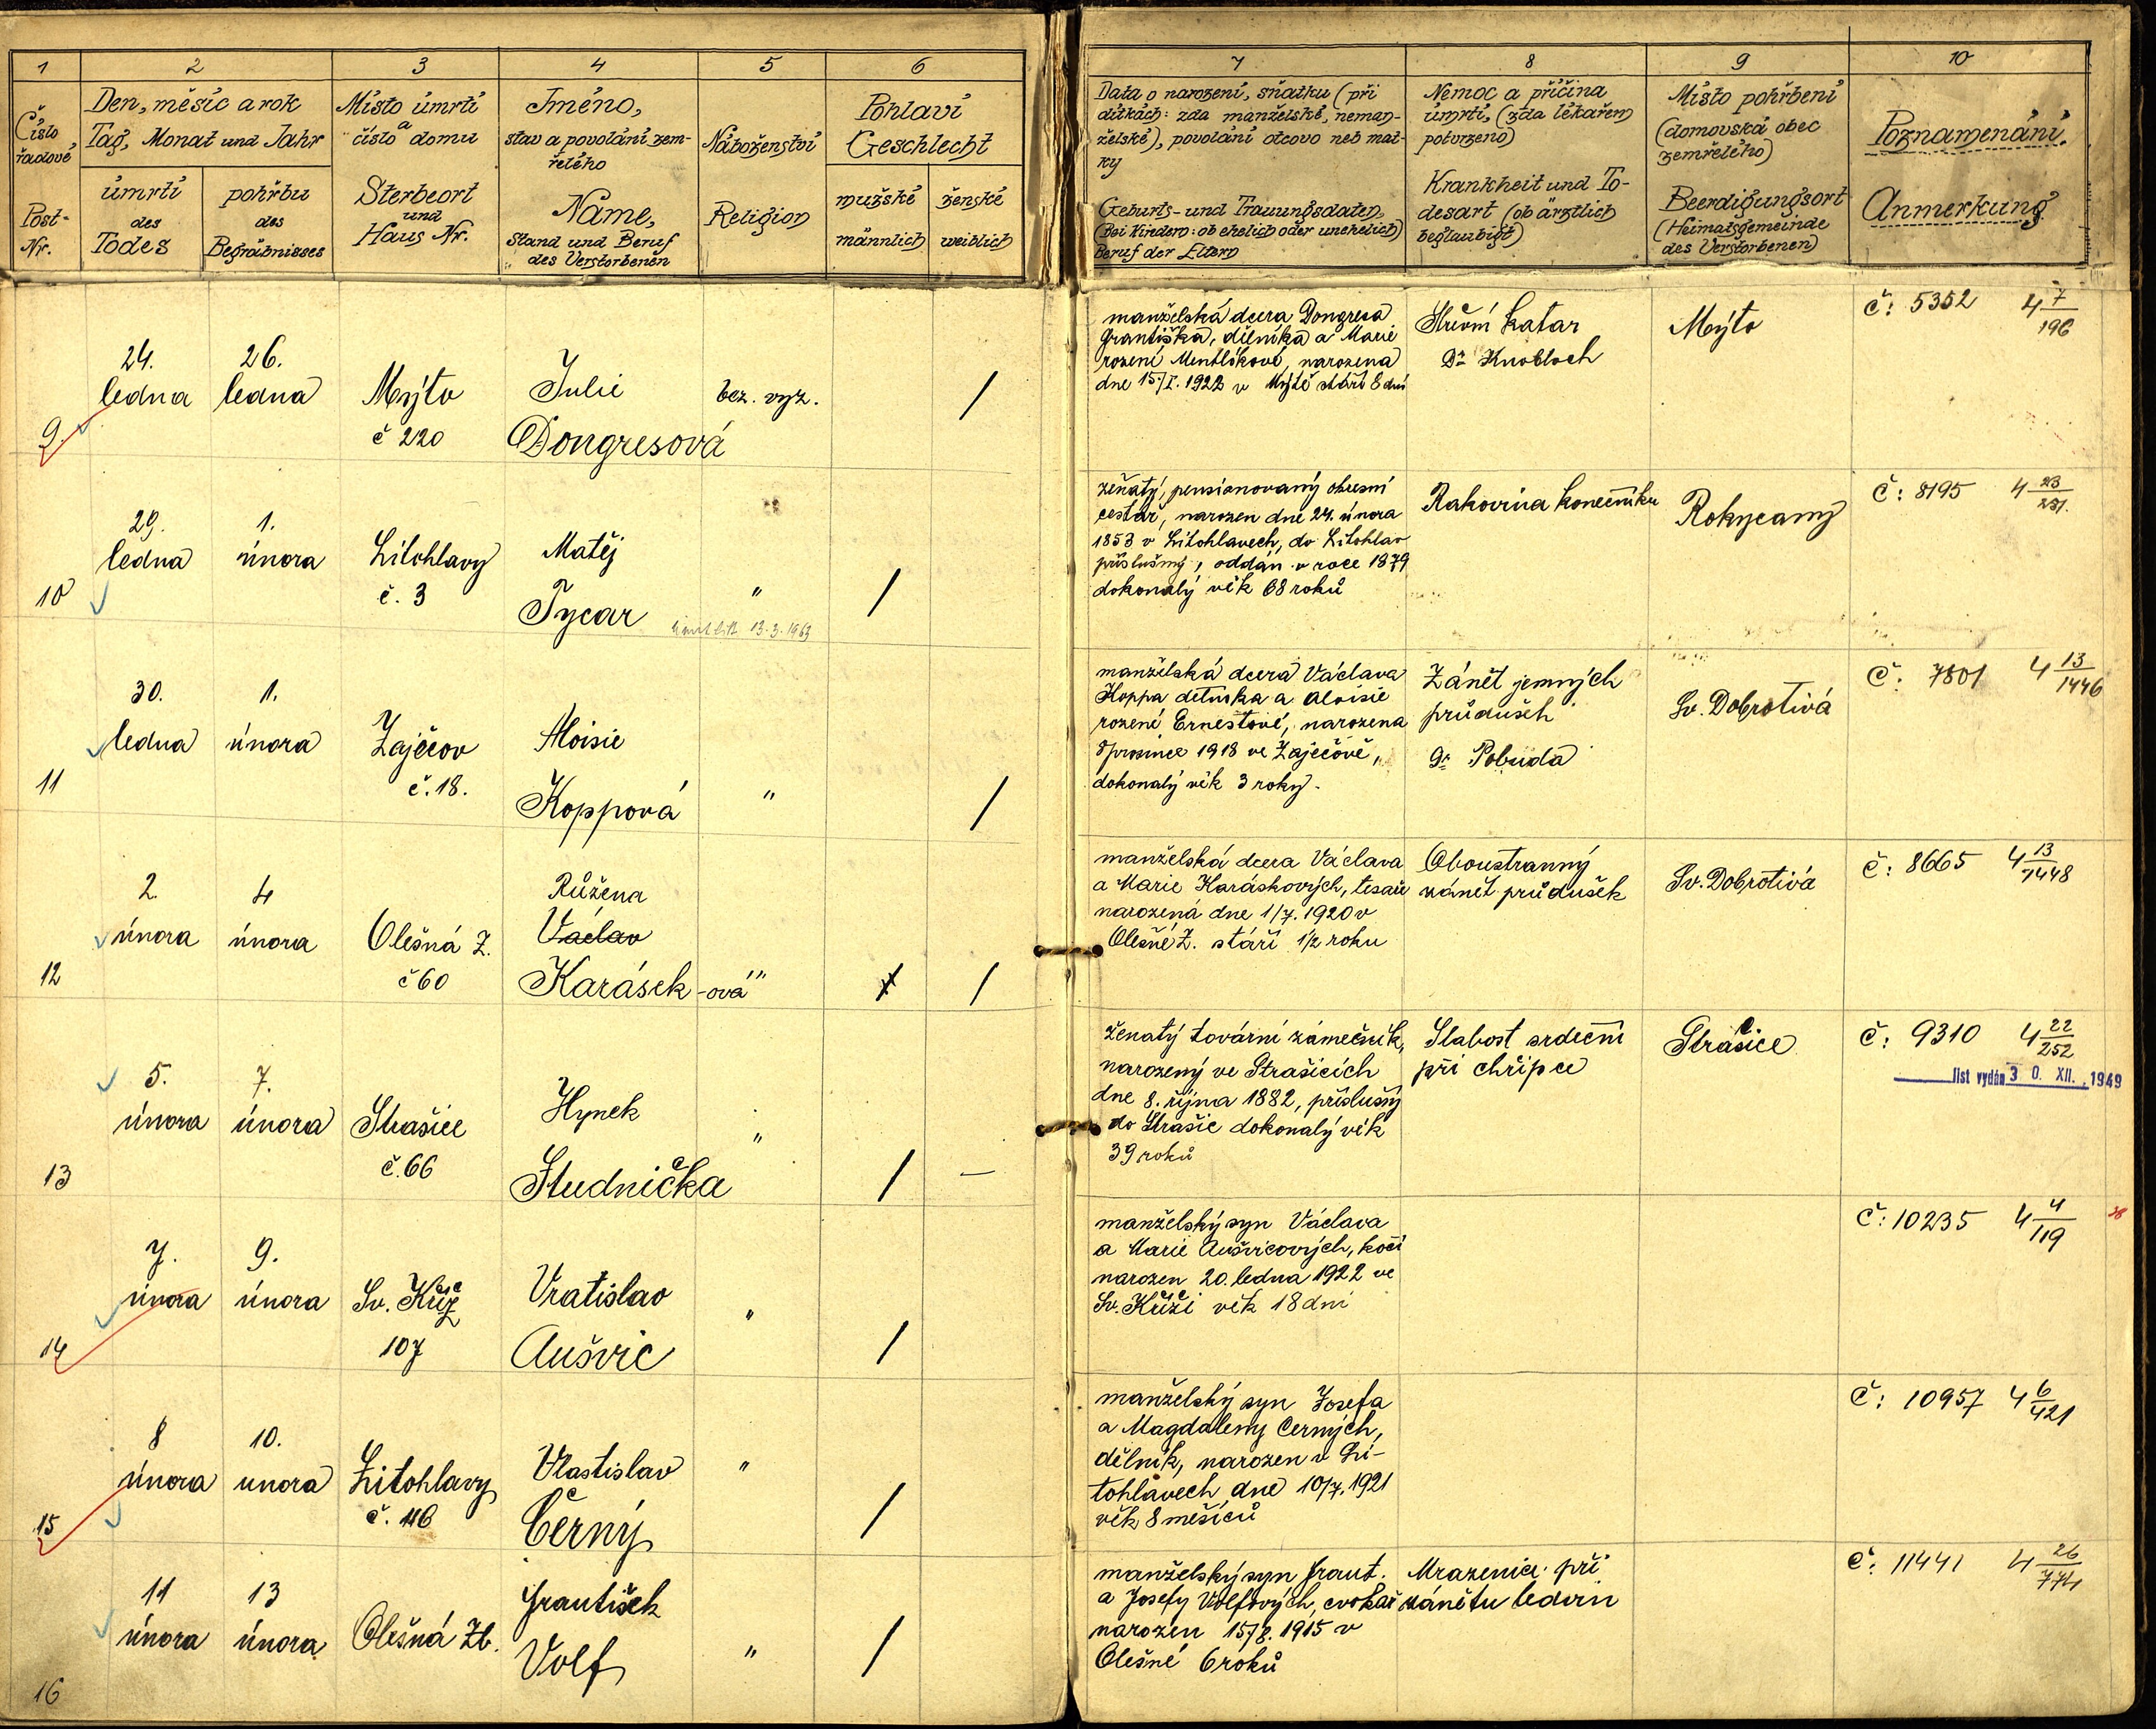 1
2
3
4
5
6
Číslo řadové
Post-Nr.
Den, měsíc a rok
Tag, Monat und Jahr
úmrtí
des
Todes
pohřbu
des
Begräbnisses
Místo úmrtí
a
číslo domu
Sterbeort
und
Haus Nr.
Jméno,
stav a povolání zem-
řelého
Name,
Stand und Beruf
des Verstorbenen
Náboženství
Religion
Pohlaví
Geschlecht
mužské
männlich
ženské
weiblich
9.
24.
ledna
26.
ledna
Mýto
č 220
Julie
Dongresová
bez. vyz.
/
10
29.
ledna
1.
února
Litohlavy
č. 3
Matěj
Tycar
13.3.1963
"
/
11
30.
ledna
1.
února
Zaječov
č. 18.
Aloisie
Koppová
"
/
12
2.
února
4
února
Olešná Z.
č 60
Růžena
Václav
Karásek-ová
"
/
13
5.
února
7.
února
Strašice
č. 66
Hynek
Studnička
"
/
14
7.
února
9.
února
Sv. Kříž
107
Vratislav
Aušvic
"
/
15
8
února
10.
unora
Litohlavy
Vlastislav
Černý
"
/
16
11
února
13
února
Olešná Zb.
František
Volf
"
/
7
8
9
10
Data o narození, sňatku (při
dítkách: zda manželské, neman-
želské), povolání otcovo neb mat-
ky
Geburts- und Trauungsdaten,
(Bei Kindern: ob ehelich oder unehelich)
Beruf der Eltern
Nemoc a příčina
úmrtí, (zda lékařem
potvrzeno)
Krankheit und To-
desart (ob ärztlich
beglaubigt)
Místo pohřbení
(domovská obec
zemřelého)
Beerdigungsort
(Heimatsgemeinde
des Verstorbenen)
Poznamenání.
Anmerkung
manželská dcera Dongresa
Františka, dělníka a Marie
rozené Mentlíkové, narozena
dne 15/I. 1922 v Mýtě stáří 8 dní
Střevní katar
Dr Knobloch
Mýto
č: 5352 4 7/196
ženatý, pensionovaný okresní
cestář, narozen dne 24. února
1853 v Litohlavech, do Litohlav
příslušný, oddán v roce 1879
dokonalý věk 68 roků
Rakovina konečníku
Rokycany
č: 8195 4 23/231.
manželská dcera Václava
Koppa dělníka a Aloisie
rozené Ernestové, narozena
8 prosince 1918 ve Zaječově,
dokonalý věk 3 roky.
Zánět jemných
průdušek
Dr Pobuda
Sv. Dobrotivá
č: 7801 4 13/1446
manželská dcera Václava
a Marie Karáskových, tesaře
narozená dne 1/7. 1920 v
Olešné Z. stáří 1/2 roku
Oboustranný
zánět průdušek
Sv. Dobrotivá
č: 8665 4 13/1448
ženatý tovární zámečník,
narozený ve Strašicích
dne 8. října 1882, příslušný
do Strašic dokonalý věk
39 roků
Slabost srdeční
při chřipce
Strašice
č: 9310 4 22/252
list vydán 3 0. XII. 1949
manželský syn Václava
a Marie Aušvicových, kočí
narozen 20. ledna 1922 ve
Sv. Kříži věk 18 dní
č: 10235 4 4/119
manželský syn Josefa
a Magdaleny Černých,
dělník, narozen v Li-
tohlavech dne 10/7. 1921
věk 8 měsíců
č: 10957 4 6/421
manželský syn Frant.
a Josefy Volfových, cvokař
narozen 15/8. 1915 v
Olešné 6 roků
Mrazenice při
zánětu ledvin
č: 11441 4 26/774